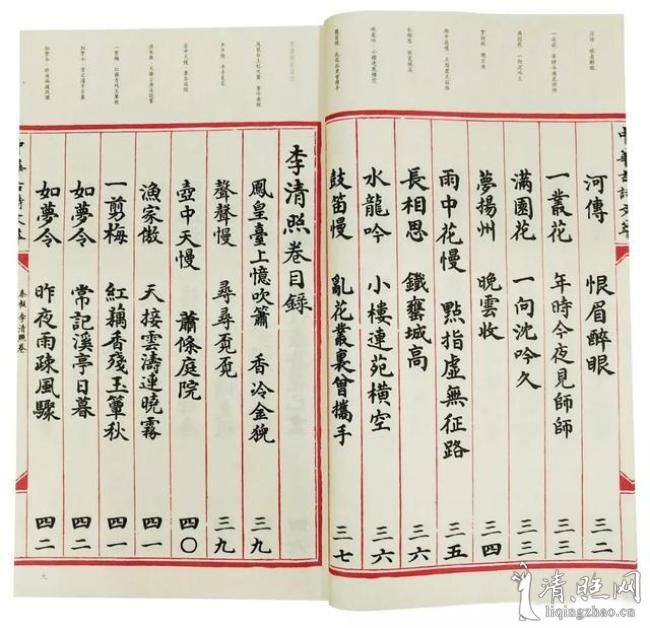 河傳 恨眉醉眼 三二
一叢花 年時今夜見師師 三三
滿園花 一向沈吟久 三三
夢揚州 晚雲收 三四
雨中花慢 點指虛無征路 三五
長相思 鐵甕城高 三六
水龍吟 小樓連苑橫空 三六
鼓笛慢 亂花叢裏曾攜手 三七
李清照卷目錄
鳳皇臺上憶吹簫 香冷金猊 三九
聲聲慢 尋尋覓覓 三九
壺中天慢 蕭條庭院 四〇
漁家傲 天接雲濤連曉霧 四一
一剪梅 紅藕香殘玉簟秋 四一
如夢令 常記溪亭日暮 四二
如夢令 昨夜雨疎風驟 四二
秦觀 李清照卷
九
liqingzhao.cn